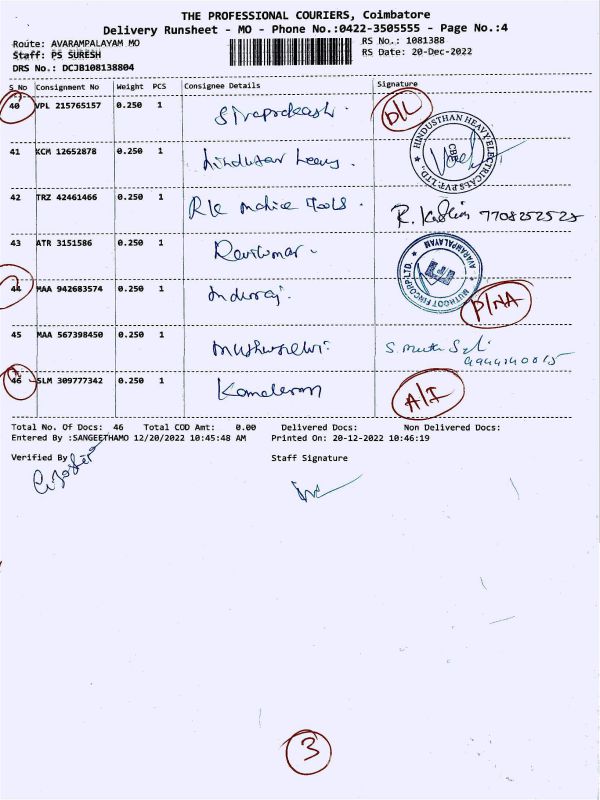 THE PROFESSIONAL COURIERS, Coimbatore
Delivery Runsheet - MO - Phone No.:0422-3505555 - Page No.:4
Route: AVARAMPALAYAM MO RS No.: 1081388
Staff: PS SURESH RS Date: 20-Dec-2022
DRS No.: DCJB108138804
S_No Consignment No Weight PCS Consignee Details Signature
40 VPL 215765157 0.250 1 Sivaprakash. D/L
41 KCM 12652878 0.250 1 hindustan heavy. HINDUSTHAN HEAVYELECTRICALS PVT. LTD., CBE
42 TRZ 42461466 0.250 1 RK machine Tools. 7708252525
43 ATR 3151586 0.250 1 Ravikumar. MUTHOOT FINCORP LTD. AVARAMPALAYAM
44 MAA 942683574 0.250 1 Induraj. P/NA
45 MAA 567398450 0.250 1 S. Muthu Selvi
9944240015
46 SLM 309777342 0.250 1 A/I
Total No. Of Docs: 46 Total COD Amt: 0.00 Delivered Docs: Non Delivered Docs:
Entered By :SANGEETHAMO 12/20/2022 10:45:48 AM Printed On: 20-12-2022 10:46:19
Verified By Staff Signature
3